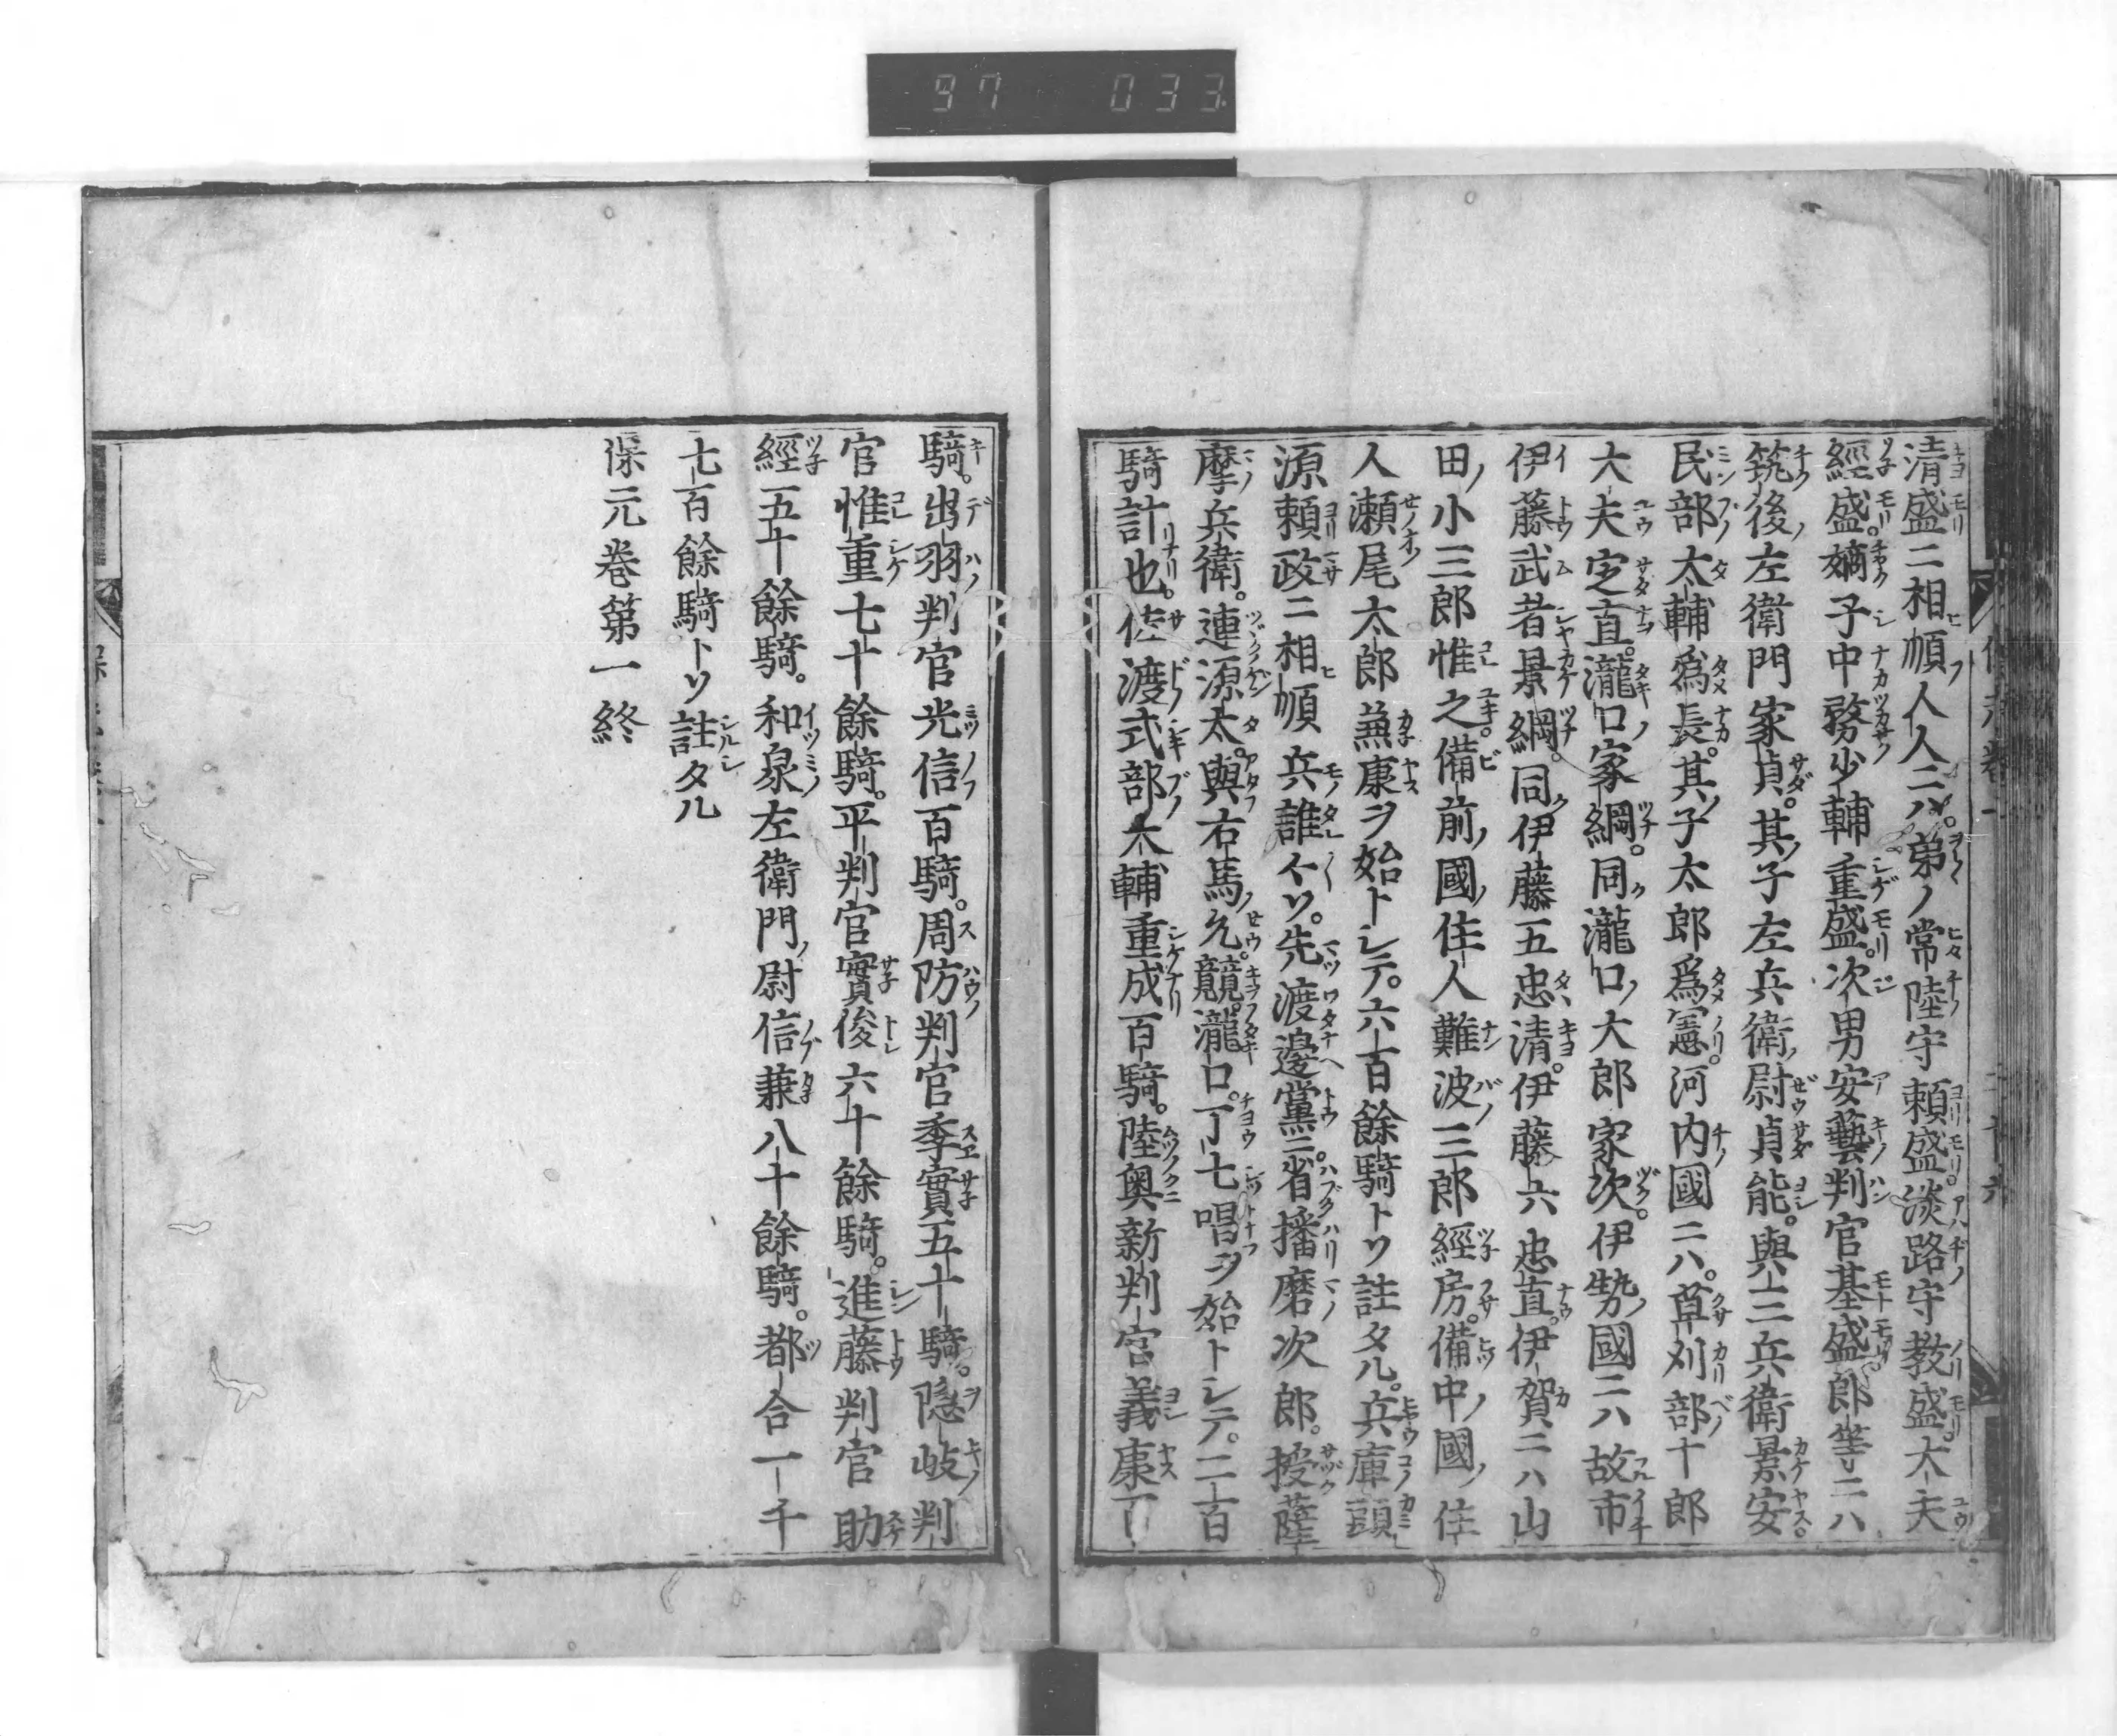 97 033
清盛ニ相順人人ニハ。弟ノ常陸守頼盛。淡路守教盛。大夫
經盛。嫡子中務少輔重盛。次男安藝判官基盛。郎等ニハ
筑後左衛門家貞。其子左兵衛尉貞能。與三兵衛景安。
民部大輔爲長。其子太郎爲憲。河内國ニハ。草刈部十郎
大夫定直。瀧口家綱。同瀧口大郎家次。伊勢國ニハ故市
伊藤武者景綱。同伊藤五忠清。伊藤六忠直。伊賀ニハ山
田小三郎惟之。備前國住人難波三郎經房。備中國住
人瀬尾太郎兼康ヲ始トシテ。六百餘騎トソ註タル。兵庫頭
源頼政ニ相順兵誰々ソ。先渡邊黨ニ。省播磨次郎。授薩
摩兵衛。連源太。與右馬允。競瀧口。丁七唱ヲ始トシテ。二百
騎計也。佐渡式部大輔重成百騎。陸奥新判官義康百
騎。出羽判官光信百騎。周防判官季實五十騎。隠岐判
官惟重七十餘騎。平判官實俊六十餘騎。進藤判官助
經五十餘騎。和泉左衛門尉信兼八十餘騎。都合一千
七百餘騎トソ註タル
保元巻第一終